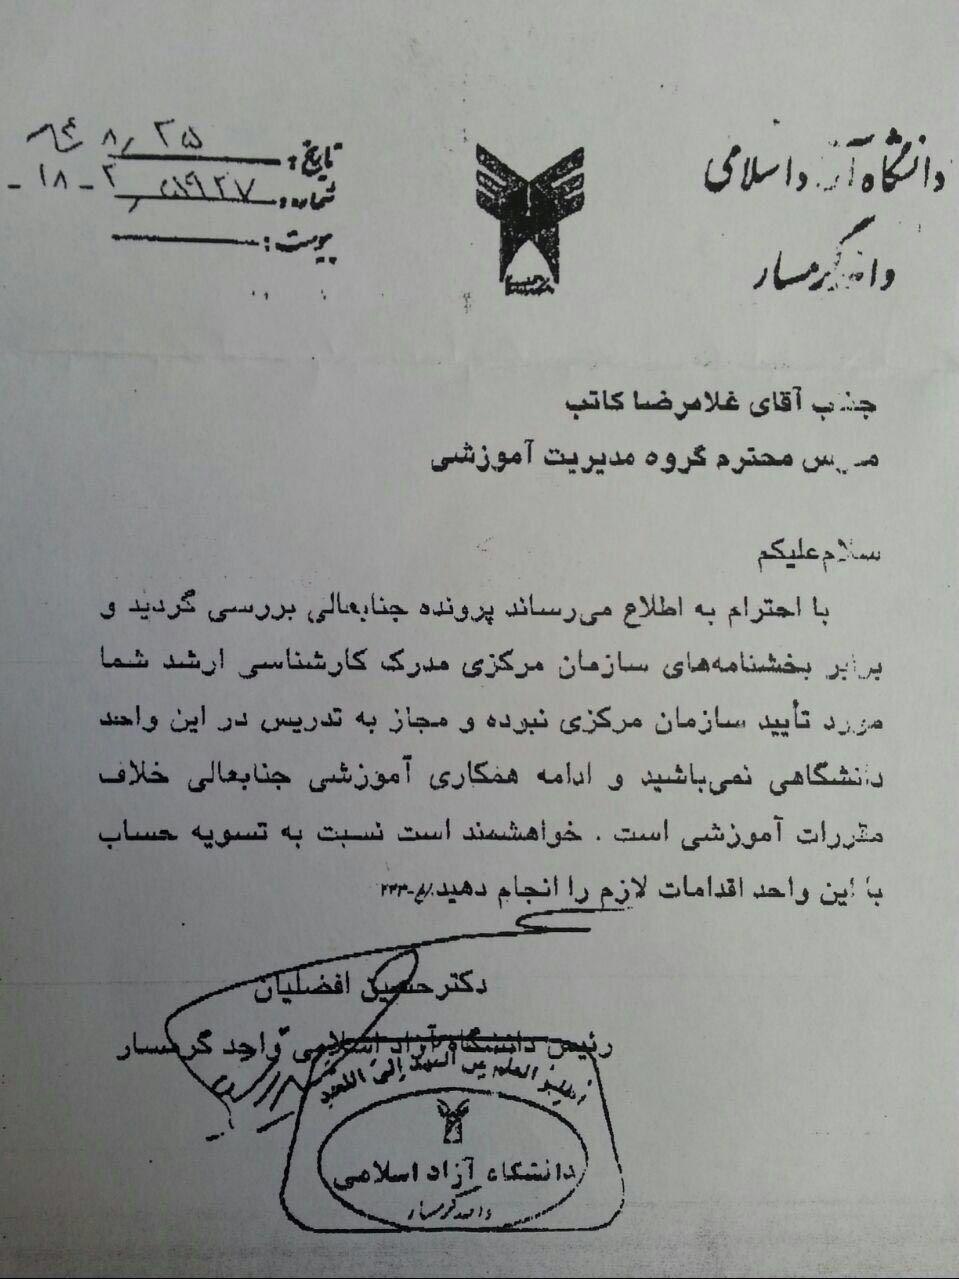 دانشگاه آزاد اسلامی
واحد گرمسار
تاریخ: ۸/۲۵
شماره:
پیوست:
جناب آقای غلامرضا کاتب
مدرس محترم گروه مدیریت آموزشی
سلام علیکم
با احترام به اطلاع می‌رساند پرونده جنابعالی بررسی گردید و
برابر بخشنامه‌های سازمان مرکزی مدرک کارشناسی ارشد شما
مورد تأیید سازمان مرکزی نبرده و مجاز به تدریس در این واحد
دانشگاهی نمی‌باشید و ادامه همکاری آموزشی جنابعالی خلاف
مقررات آموزشی است . خواهشمند است نسبت به تسویه حساب
با این واحد اقدامات لازم را انجام دهید.
دکتر حسین افضلیان
رئیس دانشگاه آزاد اسلامی واحد گرمسار
اطلبو العلم من المهد إلی اللحد
دانشگاه آزاد اسلامی
واحد گرمسار